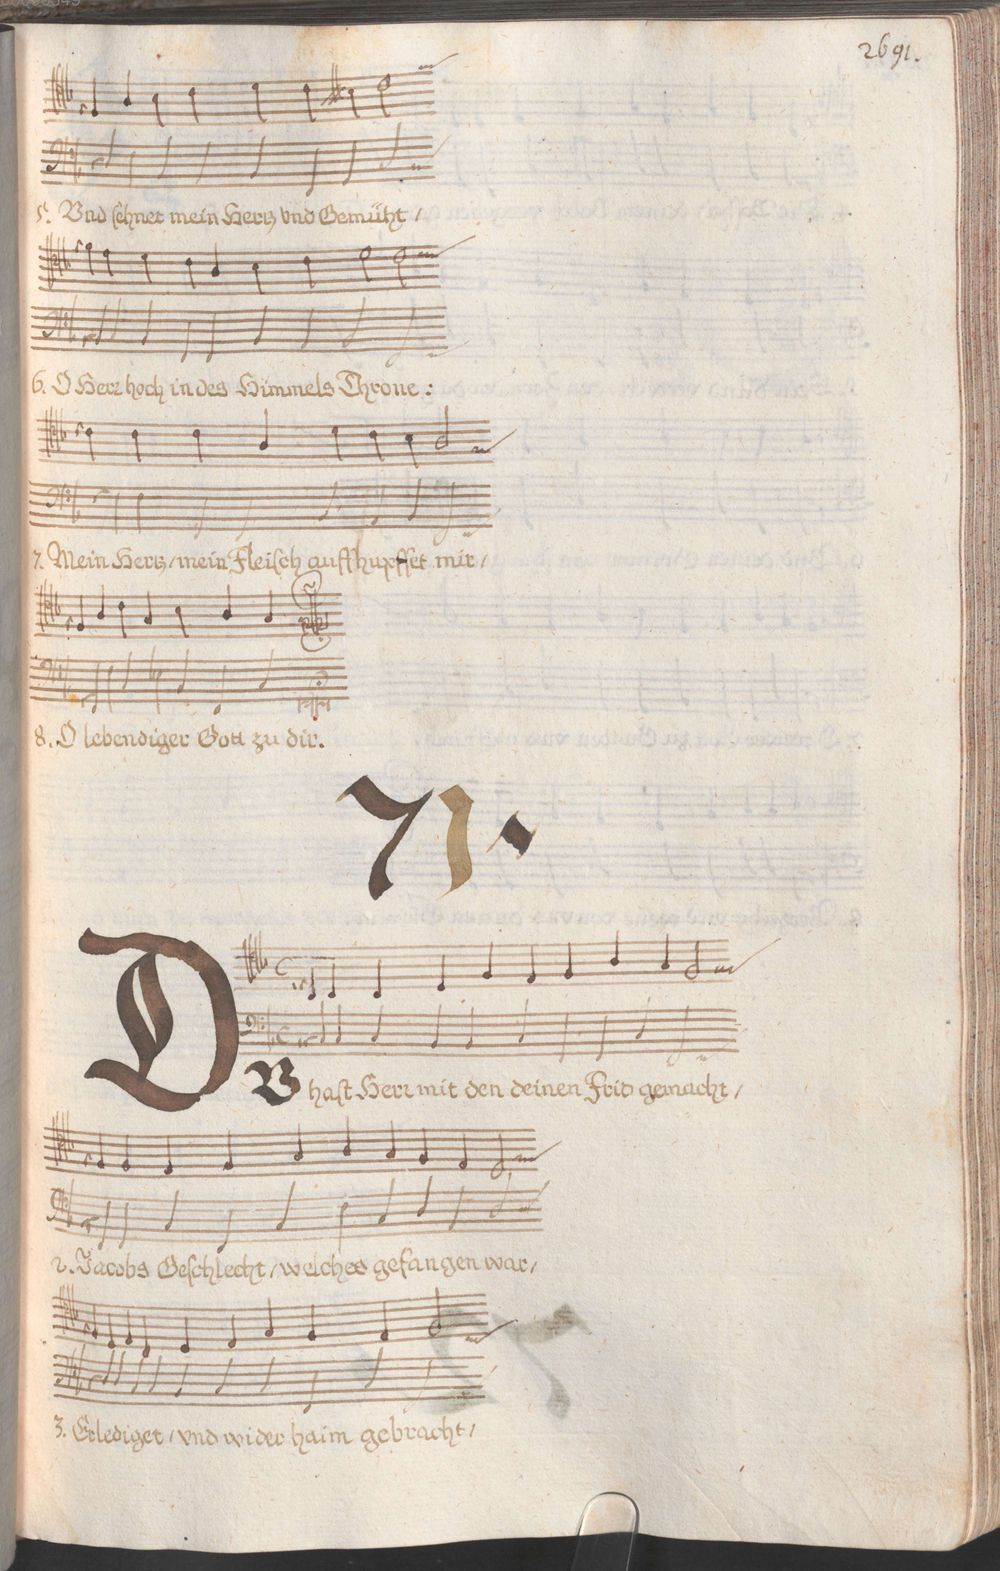 2691.
5. Vnd sehnet mein Hertz vnd Gemüht /
6. O Herr hoch in des Himmels Throne :
7. Mein Hertz / mein Fleisch auffhupffet mir /
8. O lebendiger Gott zu dir.
71.
DV hast Herr mit den deinen Frid gemacht /
2. Jacobs Geschlecht / welches gefangen war /
3. Erlediget / vnd wider haim gebracht /